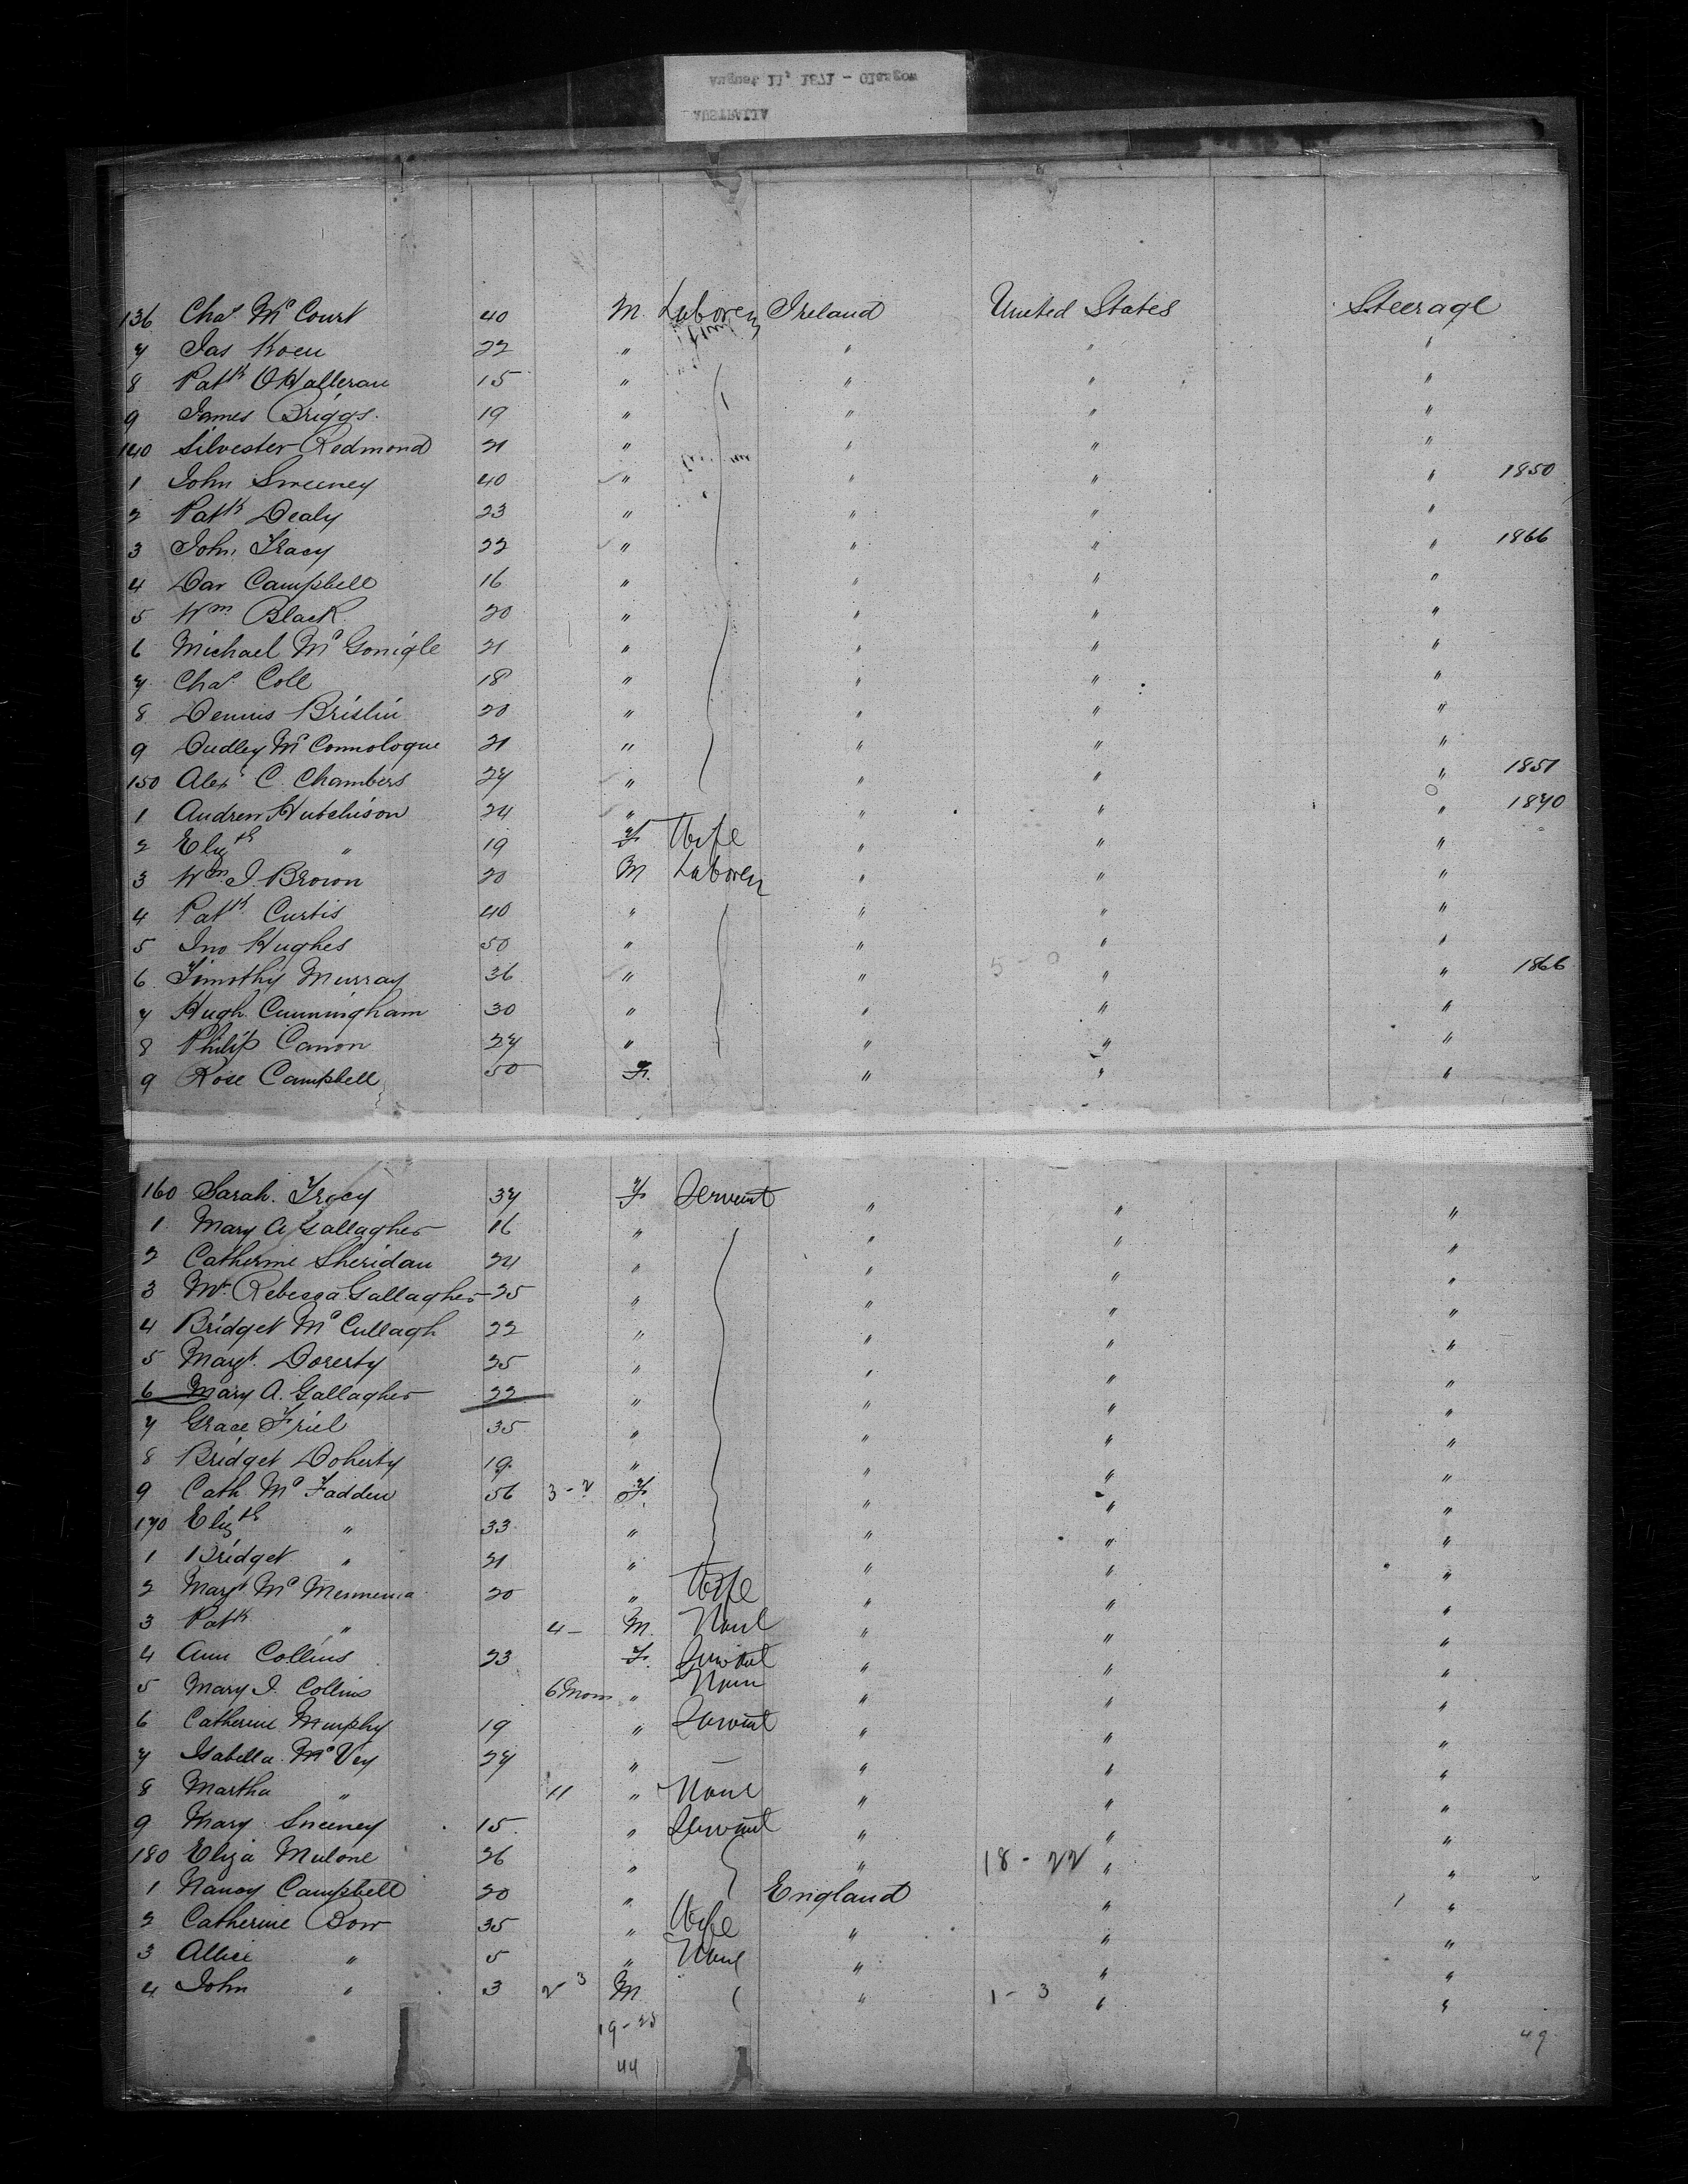 August 11, 1871 - Glasgow
AUSTRALIA
136 Chas McCourt 40 M. Laborer Ireland United States Steerage
7 Jas Koen 22 " " " "
8 Patk O'Halleran 15 " " " "
9 James Briggs. 19 " " " "
140 Silvester Redmond 21 " " " "
1 John Sweeney 40 " " " " 1850
2 Patk Dealy 23 " " " "
3 John Tracy 22 " " " " 1866
4 Dav Campbell 16 " " " "
5 Wm Black 20 " " " "
6 Michael McGonigle 21 " " " "
7 Chas Coll 18 " " " "
8 Dennis Brislin 20 " " " "
9 Dudley McConnologue 21 " " " "
150 Alexr C. Chambers 27 " " " " 1851
1 Andrew Hutchison 24 " " " " 1870
2 Elizth " 19 F Wife " " "
3 Wm J. Brown 20 M Laborer " " "
4 Patk Curtis 40 " " " "
5 Jno Hughes 50 " " " "
6 Timothy Murray 36 " " 5 - 0 " " 1866
7 Hugh Cunningham 30 " " " "
8 Philip Canon 27 " " " "
9 Rose Campbell 50 F. " " "
160 Sarah Tracy 37 F Servant " " "
1 Mary A Gallagher 16 " " " "
2 Catherine Sheridan 24 " " " "
3 Mrs Rebecca Gallagher 25 " " " "
4 Bridget McCullagh 22 " " " "
5 Margt. Dorerty 25 " " " "
6 Mary A. Gallagher 22 " " " "
7 Grace Friel 35 " " " "
8 Bridget Doherty 19 " " " "
9 Cath McFadden 56 3-2 F. " " "
170 Elizth " 33 " " " "
1 Bridget " 21 " " " "
2 Margt Mc 20 " Wife " " "
3 Patk " 4- M. None " " "
4 Ann Collins 23 F. Servant " " "
5 Mary J. Collins 6 Mons " None " " "
6 Catherine Murphy 19 " Servant " " "
7 Isabella McVey 27 " - " " "
8 Martha " 11 " None " " "
9 Mary Sweeney 15 " Servant " " "
180 Eliza Mulone 26 " " 18 - 22 " "
1 Nancy Campbell 20 " England " "
2 Catherine Bow 35 " Wife " " "
3 Allice " 5 " None " " "
4 John " 3 2 3 M " 1 - 3 " "
19-25
44
49